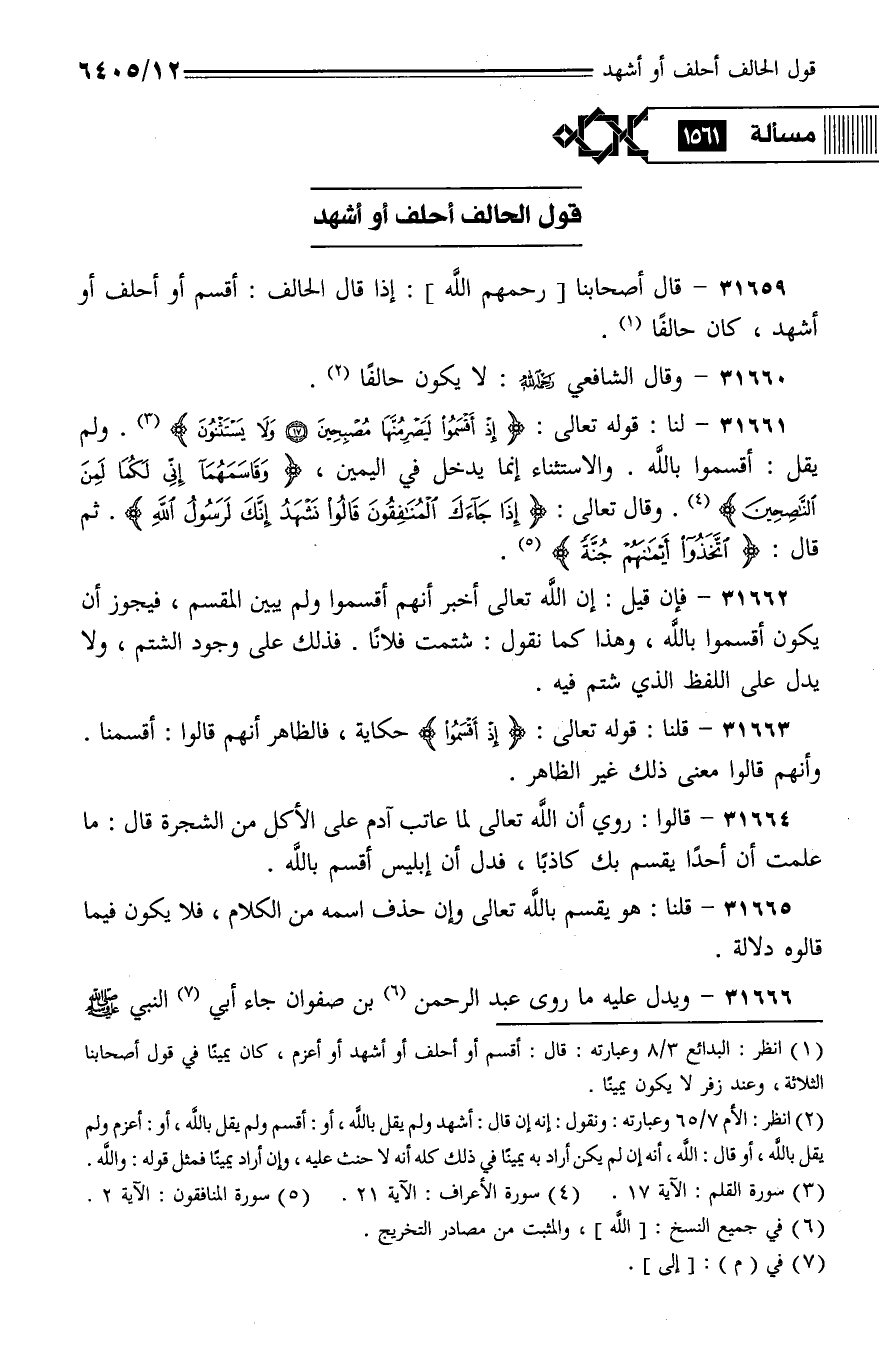 قول الحالف أحلف أو أشهد ٦٤٠٥/١٢
مسألة ١٥٦١
قول الحالف أحلف أو أشهد
٣١٦٥٩ - قال أصحابنا [ رحمهم اللَّه ] : إذا قال الحالف : أقسم أو أحلف أو
أشهد ، كان حالفًا (١) .
٣١٦٦٠ - وقال الشافعي رحمه الله : لا يكون حالفًا (٢) .
٣١٦٦١ - لنا : قوله تعالى : ﴿ إِذْ أَقْسَمُوا۟ لَيَصْرِمُنَّهَا مُصْبِحِينَ ١٧ وَلَا يَسْتَثْنُونَ ﴾ (٣) . ولم
يقل : أقسموا باللَّه . والاستثناء إنما يدخل في اليمين ، ﴿ وَقَاسَمَهُمَآ إِنِّى لَكُمَا لَمِنَ
ٱلنَّٰصِحِينَ ﴾ (٤) . وقال تعالى : ﴿ إِذَا جَآءَكَ ٱلْمُنَٰفِقُونَ قَالُوا۟ نَشْهَدُ إِنَّكَ لَرَسُولُ ٱللَّهِ ﴾ . ثم
قال : ﴿ ٱتَّخَذُوٓا۟ أَيْمَٰنَهُمْ جُنَّةً ﴾ (٥) .
٣١٦٦٢ - فإن قيل : إن اللَّه تعالى أخبر أنهم أقسموا ولم يبين المقسم ، فيجوز أن
يكون أقسموا باللَّه ، وهذا كما نقول : شتمت فلانًا . فذلك على وجود الشتم ، ولا
يدل على اللفظ الذي شتم فيه .
٣١٦٦٣ - قلنا : قوله تعالى : ﴿ إِذْ أَقْسَمُوا۟ ﴾ حكاية ، فالظاهر أنهم قالوا : أقسمنا .
وأنهم قالوا معنى ذلك غير الظاهر .
٣١٦٦٤ - قالوا : روي أن اللَّه تعالى لما عاتب آدم على الأكل من الشجرة قال : ما
علمت أن أحدًا يقسم بك كاذبًا ، فدل أن إبليس أقسم باللَّه .
٣١٦٦٥ - قلنا : هو يقسم باللَّه تعالى وإن حذف اسمه من الكلام ، فلا يكون فيما
قالوه دلالة .
٣١٦٦٦ - ويدل عليه ما روى عبد الرحمن (٦) بن صفوان جاء أبي (٧) النبي ﷺ
(١) انظر : البدائع ٨/٣ وعبارته : قال : أقسم أو أحلف أو أشهد أو أعزم ، كان يمينًا في قول أصحابنا
الثلاثة ، وعند زفر لا يكون يمينًا .
(٢) انظر : الأم ٦٥/٧ وعبارته : ونقول : إنه إن قال : أشهد ولم يقل باللَّه ، أو : أقسم ولم يقل باللَّه ، أو : أعزم ولم
يقل باللَّه ، أو قال : اللَّه ، أنه إن لم يكن أراد به يمينًا في ذلك كله أنه لا حنث عليه ، وإن أراد يمينًا فمثل قوله : واللَّه .
(٣) سورة القلم : الآية ١٧ . (٤) سورة الأعراف : الآية ٢١ . (٥) سورة المنافقون : الآية ٢ .
(٦) في جميع النسخ : [ اللَّه ] ، والمثبت من مصادر التخريج .
(٧) في ( م ) : [ إلى ] .